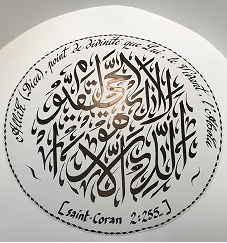 Allâh (Dieu), point de divinité que Lui, le Vivant, l'Absolu
الله لا إله إلا هو الحي القيوم
[saint-Coran 2:255.]